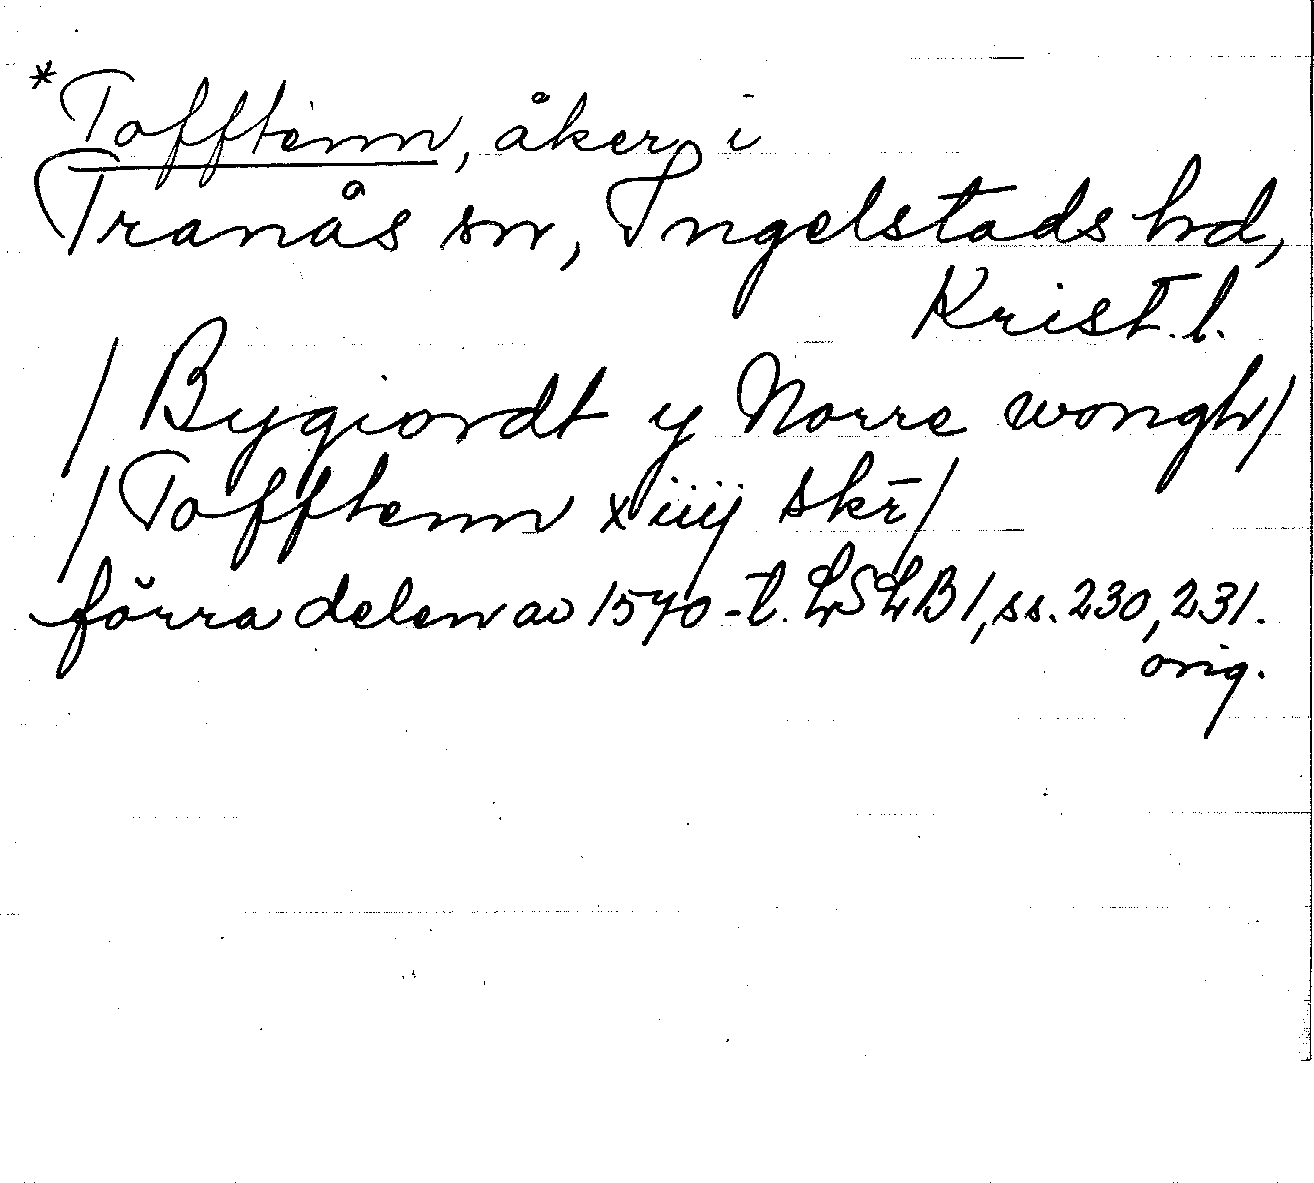 *Tofftenn, åker i
Tranås sn, Ingelstads hd,
Krist. l.
/ Bygiordt y Norre wongh /
/ Tofftenn x iiij skr̄ /
förra delen av 1570-t. LSLB 1, ss. 230, 231.
orig.